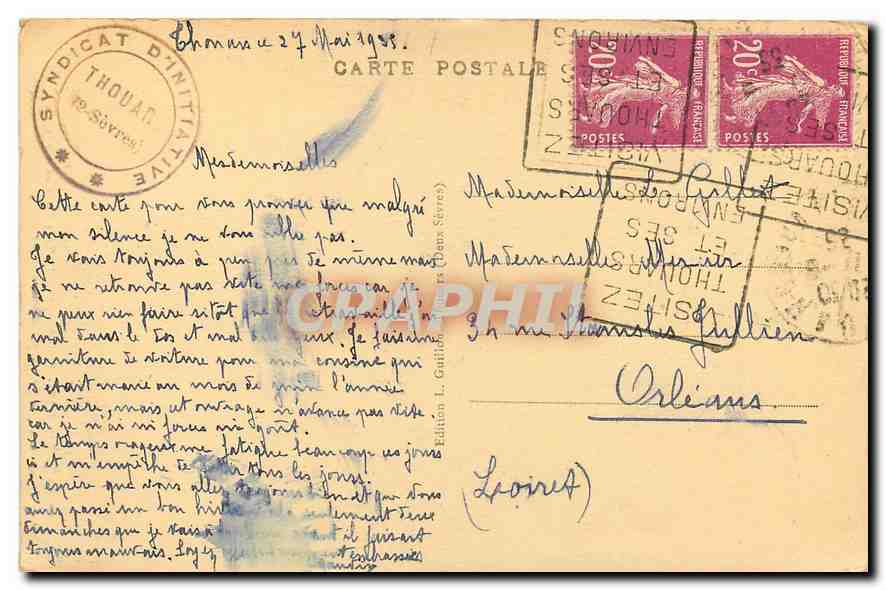 Thouars ce 27 Mai 1935.
CARTE POSTALE
SYNDICAT D'INITIATIVE
THOUARS
(2-Sèvres)
20c
REPUBLIQUE FRANÇAISE
POSTES
20c
REPUBLIQUE FRANÇAISE
POSTES
VISITEZ
THOUARS
ET SES
ENVIRONS
VISITEZ
THOUARS
ET SES
ENVIRONS
Mesdemoiselles
Cette carte pour vous prouver que malgré
mon silence je ne vous oublie pas.
Je vais toujours à peu près de même mais
je ne retrouve pas vite mes forces car je
ne peux rien faire sitôt que je travaille j'ai
mal dans le dos et mal aux yeux. Je fais une
garniture de voiture pour ma cousine qui
s'était mariée au mois de juin l'année
dernière, mais cet ouvrage n'avance pas vite
car je n'ai ni forces ni goût.
Le temps orageux me fatigue beaucoup ces jours
ci et m'empêche de tous les jours.
J'espère que vous allez toujours bien et que vous
avez passé un bon hiver seulement deux
dimanches que je vais à avant il faisait
toujours mauvais. Soyez embrassées
Edition L. Guillon, Thouars (Deux Sèvres)
Mademoiselle Le Gallet
Mademoiselle Mercier
34 rue Stanislas Jullien
Orléans
(Loiret)
CPAPHIL